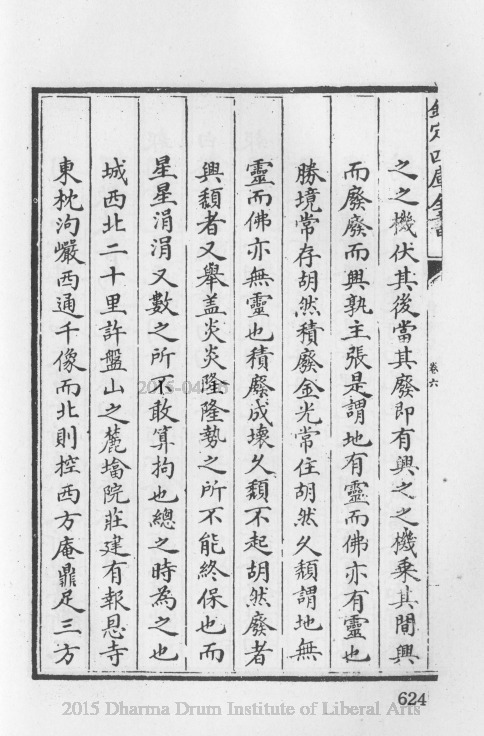 欽定四庫全書
卷六
之之機伏其後當其廢即有興之之機乘其間興
而廢廢而興孰主張是謂地有靈而佛亦有靈也
勝境常存胡然積廢金光常住胡然久頹謂地無
靈而佛亦無靈也積廢成壞久頹不起胡然廢者
興頹者又舉蓋炎炎隆隆勢之所不能終保也而
星星涓涓又數之所不敢算拘也總之時為之也
城西北二十里許盤山之麓墖院莊建有報恩寺
東枕泃巖西通千像而北則控西方庵鼎足三方
2015-04-
624
2015 Dharma Drum Institute of Liberal Arts